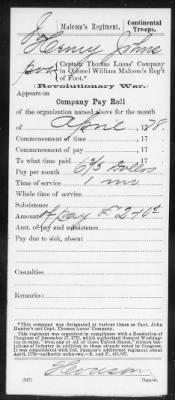 Malcom's Regiment. Continental Troops.
Henry Johns
Captain Thomas Lucas' Company
in Colonel William Malcom's Reg't
of Foot.*
Revolutionary War.
Appears on
Company Pay Roll
of the organization named above for the month
of April, 1778.
Commencement of time 17
Commencement of pay 17
To what time paid 17
Pay per month 6 2/3 Dollars
Time of service 1 mo
Whole time of service
Subsistence
Amount of pay £ 2..10..0
Amt. of pay and subsistence
Pay due to sick, absent
Casualties
Remarks:
*This company was designated at various times as Capt. John
Hunter's and Capt. Thomas Lucas' Company.
This regiment was organized in compliance with a Resolution of
Congress of December 27, 1776, which authorized General Washington
to raise, "from any or all of these United States," sixteen battalions
of infantry in addition to those already voted by Congress.
It was consolidated with Col. Spencer's additional regiment about
April, 1779
(547) Copyist.